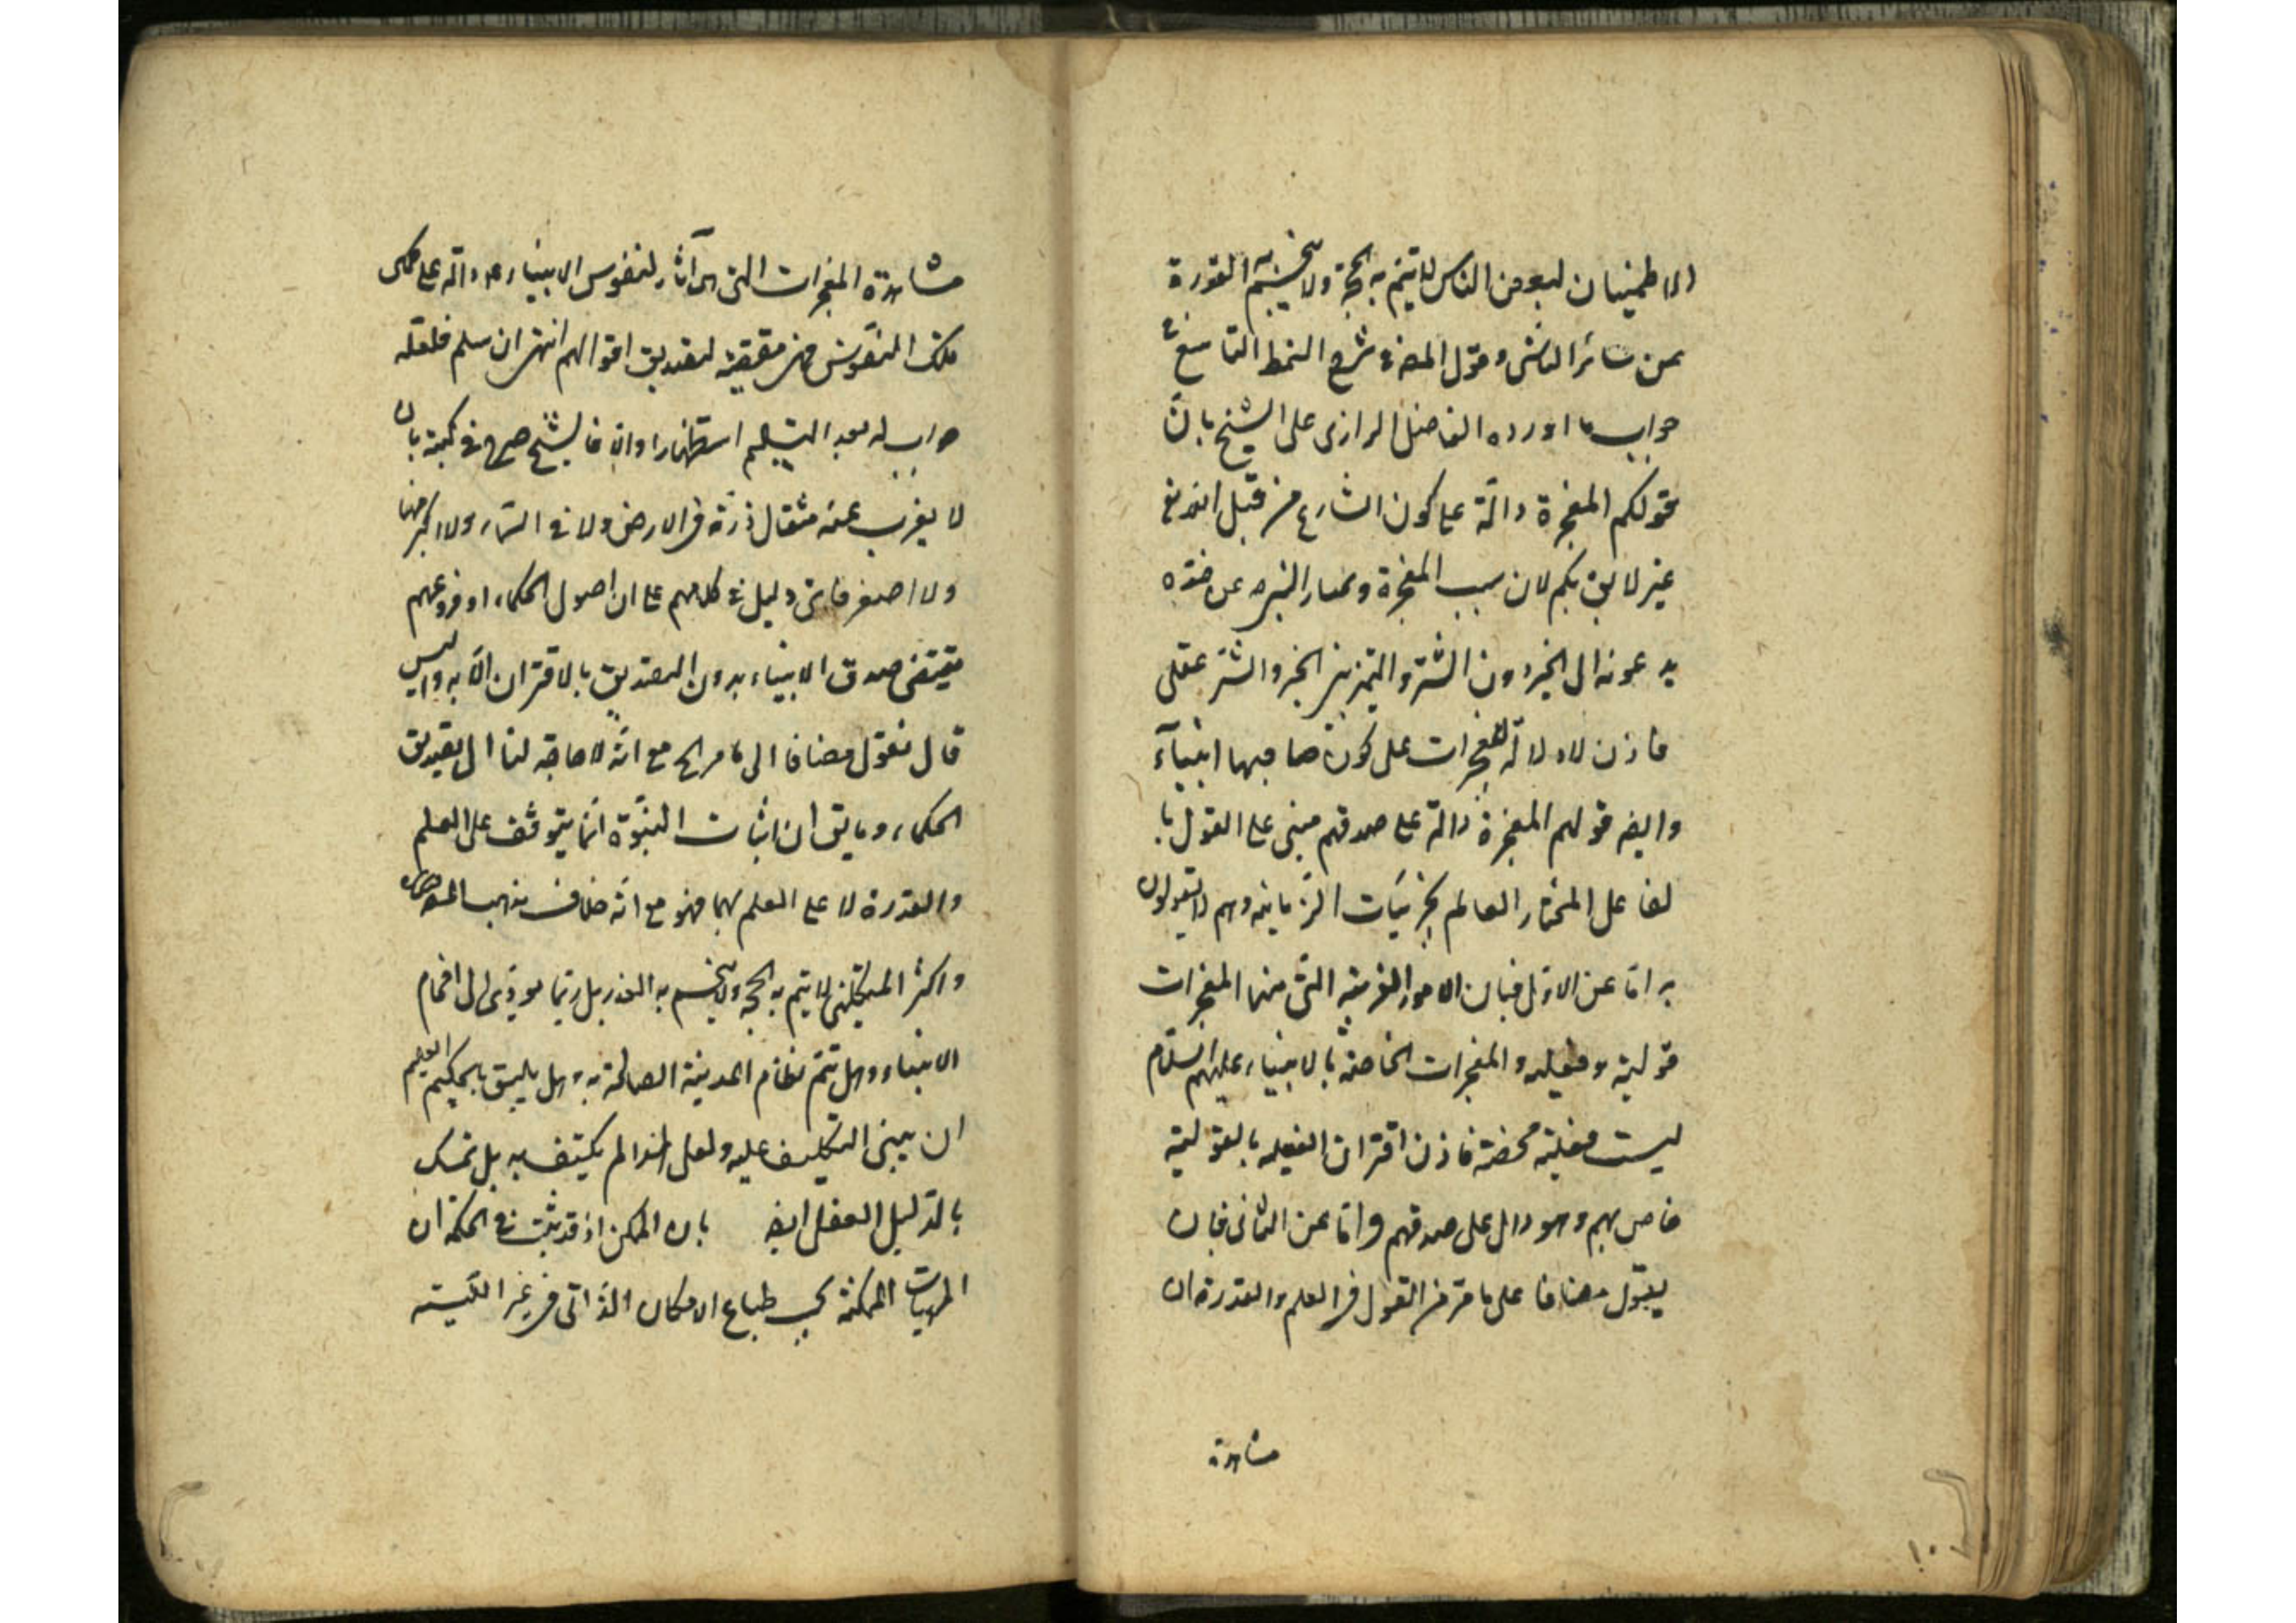 الاطمينان لبعض الناس لا يتم به الحجة ولا ينحسم به القدرة
من سائر الناس وقول المص في شرح النمط التاسع في
جواب ما اورده الفاضل الرازى على الشيخ بانّ
قولكم المعجزة دالّة على كون الشارع من قبل الله تع
غير لايق بكم لان سبب المعجزة وعن ضده
يدعونه الى الخير دون الشرّ والتميز بين الخير والشرّ عقلى
فاذن لا دلالة للمعجزات على كون صاحبها انبيآء
وايضه قولهم المعجزة دالة على صدقهم مبنى على القول با
لفاعل المختار العالم بجزئيّات الزمانية وهم لا يقولون
به امّا عن الاوّل فبان الامور الغريبة التّى منها المعجزات
قولية وفعلية والمعجزات الخاصة بالانبياء عليهم السّلام
ليست فعلية محضة فاذن اقتران الفعليه بالقولية
خاص بهم وهو دال على صدقهم وامّا عن الثانى فبان
يقول مضافا على ما مرّ من القول فى العلم والقدرة ان
مشاهدة
مشاهدة المعجزات التى هى آثار لنفوس الانبياء ع دالّه على كمال
تلك النفوس فهى مقتضية لتصديق اقوالهم انتهى ان سلم فلعلّه
جواب له بعد التسليم استظهارا والا فالشيخ صرح فى كتبه بان
لا يعزب عنه مثقال ذرّة فى الارض ولا فى السّماء ولا اكبر منها
ولا اصغر فاىّ دليل فى كلامهم على ان اصول الحكماء او فروعهم
يقتضى صدق الانبياء بدون التصديق بالاقتران الّا به وليس
قال فنقول مضافا الى ما مر الخ مع انّه لا حاجة لنا الى تصديق
الحكماء وما يق ان اثبات النبّوة انّما يتوقّف على العلم
والقدرة لا على العلم بهما فهو مع انّه خلاف مذهب المص
واكثر المتكلمين لا يتم به الحجه ولا ينحسم به العذر بل ربّما يؤدّى الى افحام
الانبياء وهل يتمّ نظام المدينة الصالحة به وهل يليق بالحكيم العليم
ان يبنى التكليف عليه ولعل لهذا لم يكتف به بل تمسك
بالدّليل العقلى ايضه بان الممكن اذ قد ثبت فى الحكمة ان
المهيات الممكنة بحسب طباع الامكان الذّاتى فى غير الليسية